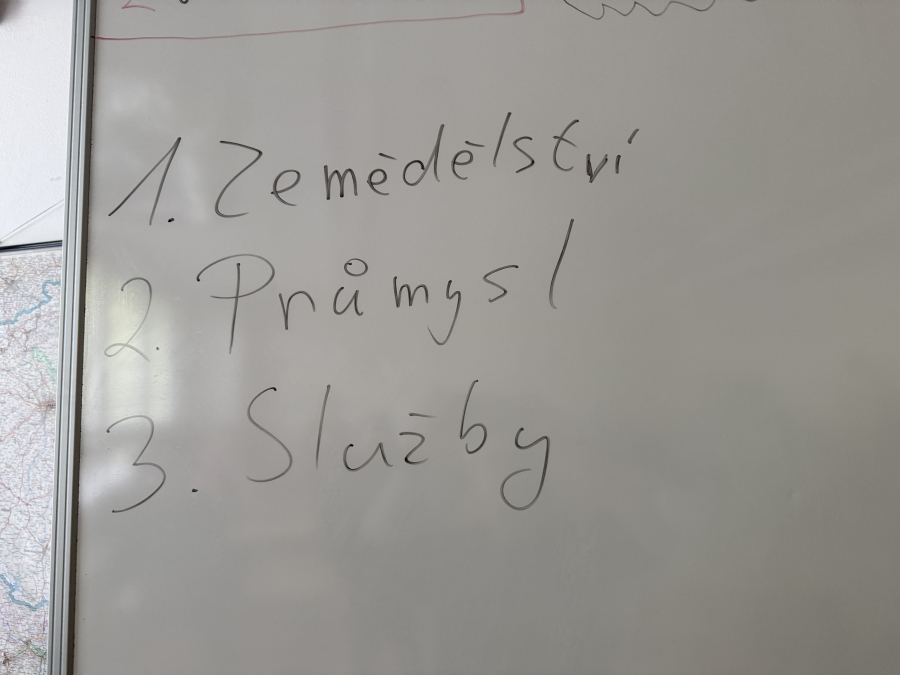 1. Zemědělství
2. Průmysl
3. Služby